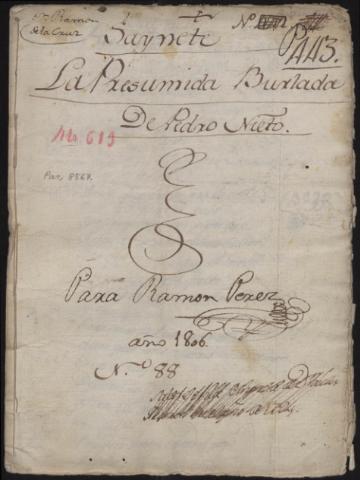 Dn Ramon
de la Cruz
Nº
Saynete
P 443.
La Presumida Burlada
De Pedro Nieto.
M. 619
Par. 8568.
Para Ramon Perez
año 1806.
N.º 88